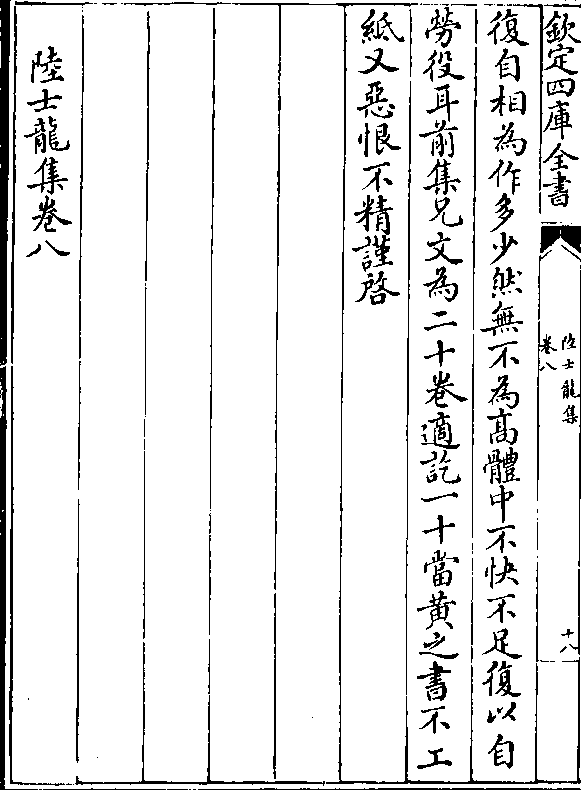 欽定四庫全書
陸士龍集
卷八
十八
復自相為作多少然無不為髙體中不快不足復以自
勞役耳前集兄文為二十卷適訖一十當黃之書不工
紙又惡恨不精謹啓
陸士龍集卷八